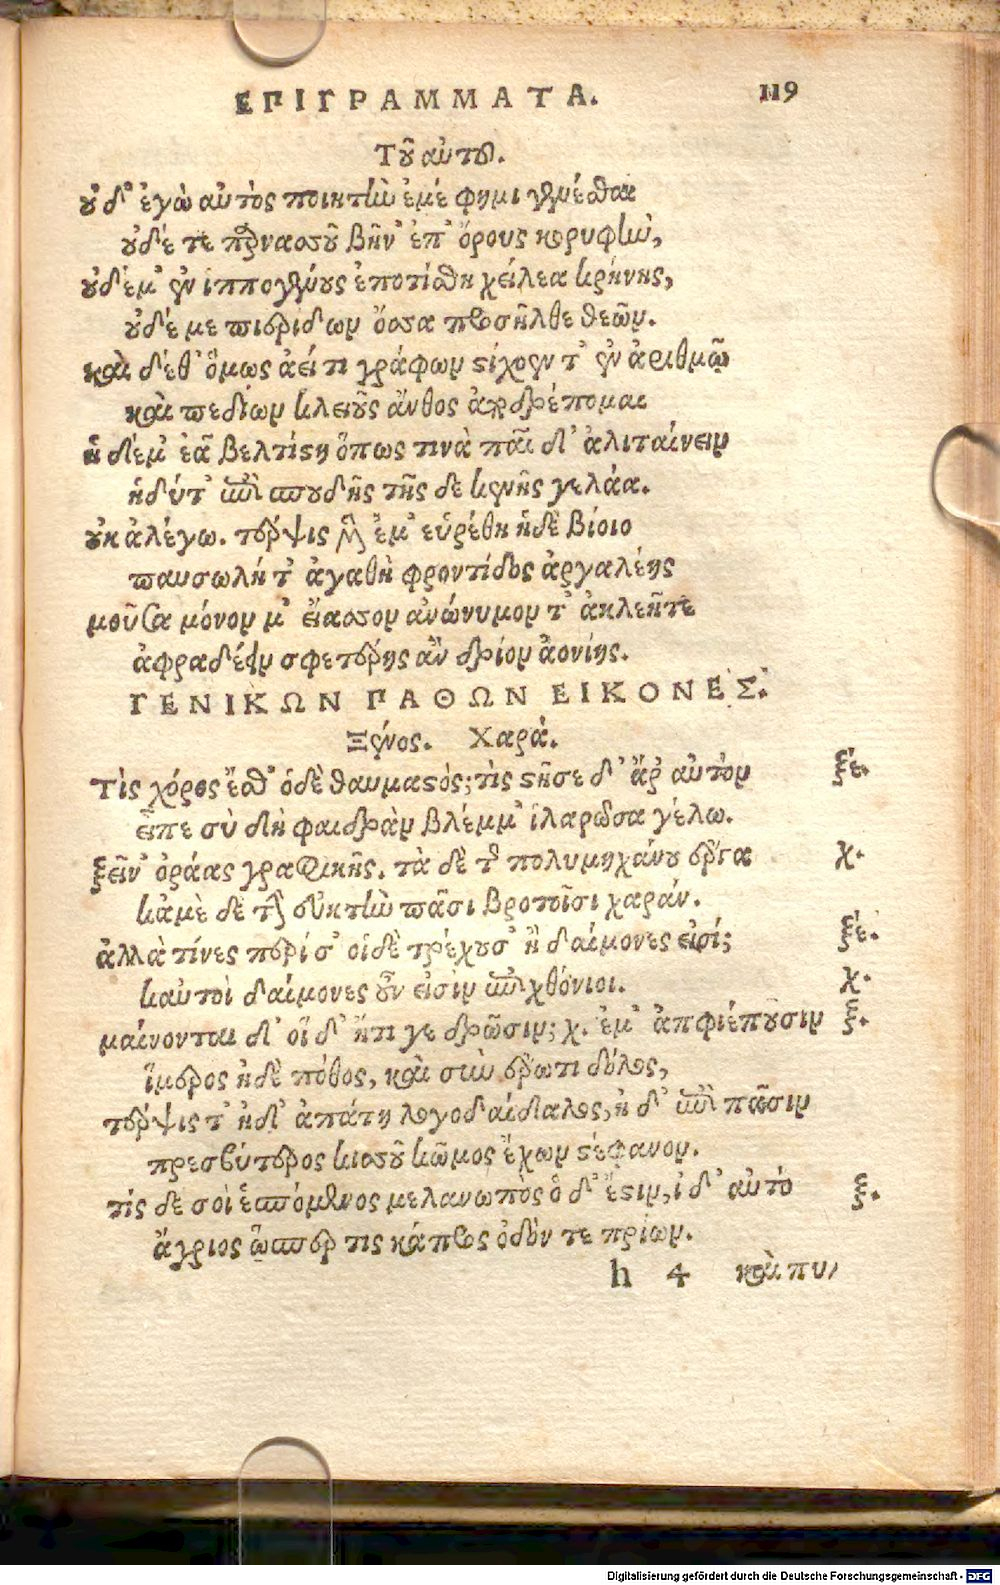 ΕΠΙΓΡΑΜΜΑΤΑ. 119
Τοῦ αὐτοῦ.
οὐδ' ἐγὼ αὐτὸς ποιητὴν ἐμέ φημι γενέσθαι
οὐδέ τε πρνασοῦ βῆν' ἐπ' ὄρους κορυφὴν,
οὐδ' ἐμ' ἐν ἱππογενους ἐποτίσθη χείλεα κρήνης,
οὐδέ με πιερίδων ὄσσα προσῆλθε θεῶν.
καὶ δ' ἔθ' ὅμως ἀεί τι γράφων στίχοεν τ' ἐν ἀριθμῷ
καὶ πεδίων κλειοῦς ἄνθος ἀποδρέπομαι
ἡ δ' ἐμ' ἐᾷ βελτίστη ὅπως τινὰ παῖδ' ἀλιταίνειν
ἡδύτ' ἐπὶ σπουδῆς τῆς δε κενῆς γελάα.
οὐκ ἀλέγω. τέρψις γὰρ ἐμ' εὑρέθη ἠδὲ βίοιο
παυσωλή τ' ἀγαθὴ φροντίδος ἀργαλέης
μοῦσα μόνον μ' εἴασον ἀνώνυμον τ' ἀκλεῆ τε
ἀφραδέειν σφετέρης ἂν δρίον ἀονίης.
ΓΕΝΙΚΩΝ ΠΑΘΩΝ ΕΙΚΟΝΕΣ.
Ξένος. Χαρά.
Τὶς χόρος ἔσθ' ὁδὲ θαυμαστός; τὶς στῆσε δ' ἄρ' αὐτὸν ξέ.
εἶπε σὺ δὴ φαιδρὰν βλέμμ' ἱλαροῦσα γέλω.
ξεῖν' ὁράας γραφικῆς. τὰ δὲ τοῦ πολυμηχάνου ἔργα χ.
κἀμὲ δὲ τὴν σὐκτὴν πᾶσι βροτοῖσι χαράν.
ἀλλὰ τίνες περί σ' οἱδὲ τρέχουσ' ἢ δαίμονες εἰσί; ξέ.
καὐτοὶ δαίμονες οὖν εἰσὶν ἐπιχθόνιοι. χ.
μαίνονται δ' οἵ δ' ἤτι γε δρῶσιν; χ. ἐμ' ἀπφιέπουσιν ξ.
ἵμερος ἠδὲ πόθος, καὶ σὺν ἔρωτι δόλος,
τέρψις τ' ἠδ' ἀπάτη λογοδαίδαλος, ἠδ' ἐπὶ πᾶσιν
πρεσβύτερος κισσοῦ κῶμος ἔχων στέφανον.
τίς δε σοὶ ἑσπόμενος μελανωπὸς ὁ δ' ἔστιν, ἰδ' αὐτὸ ξ.
ἄγριος ὥσπερ τις κάπρος ὀδόν τε πρίων.
h 4 καὶ πυ/
Digitalisierung gefördert durch die Deutsche Forschungsgemeinschaft - DFG